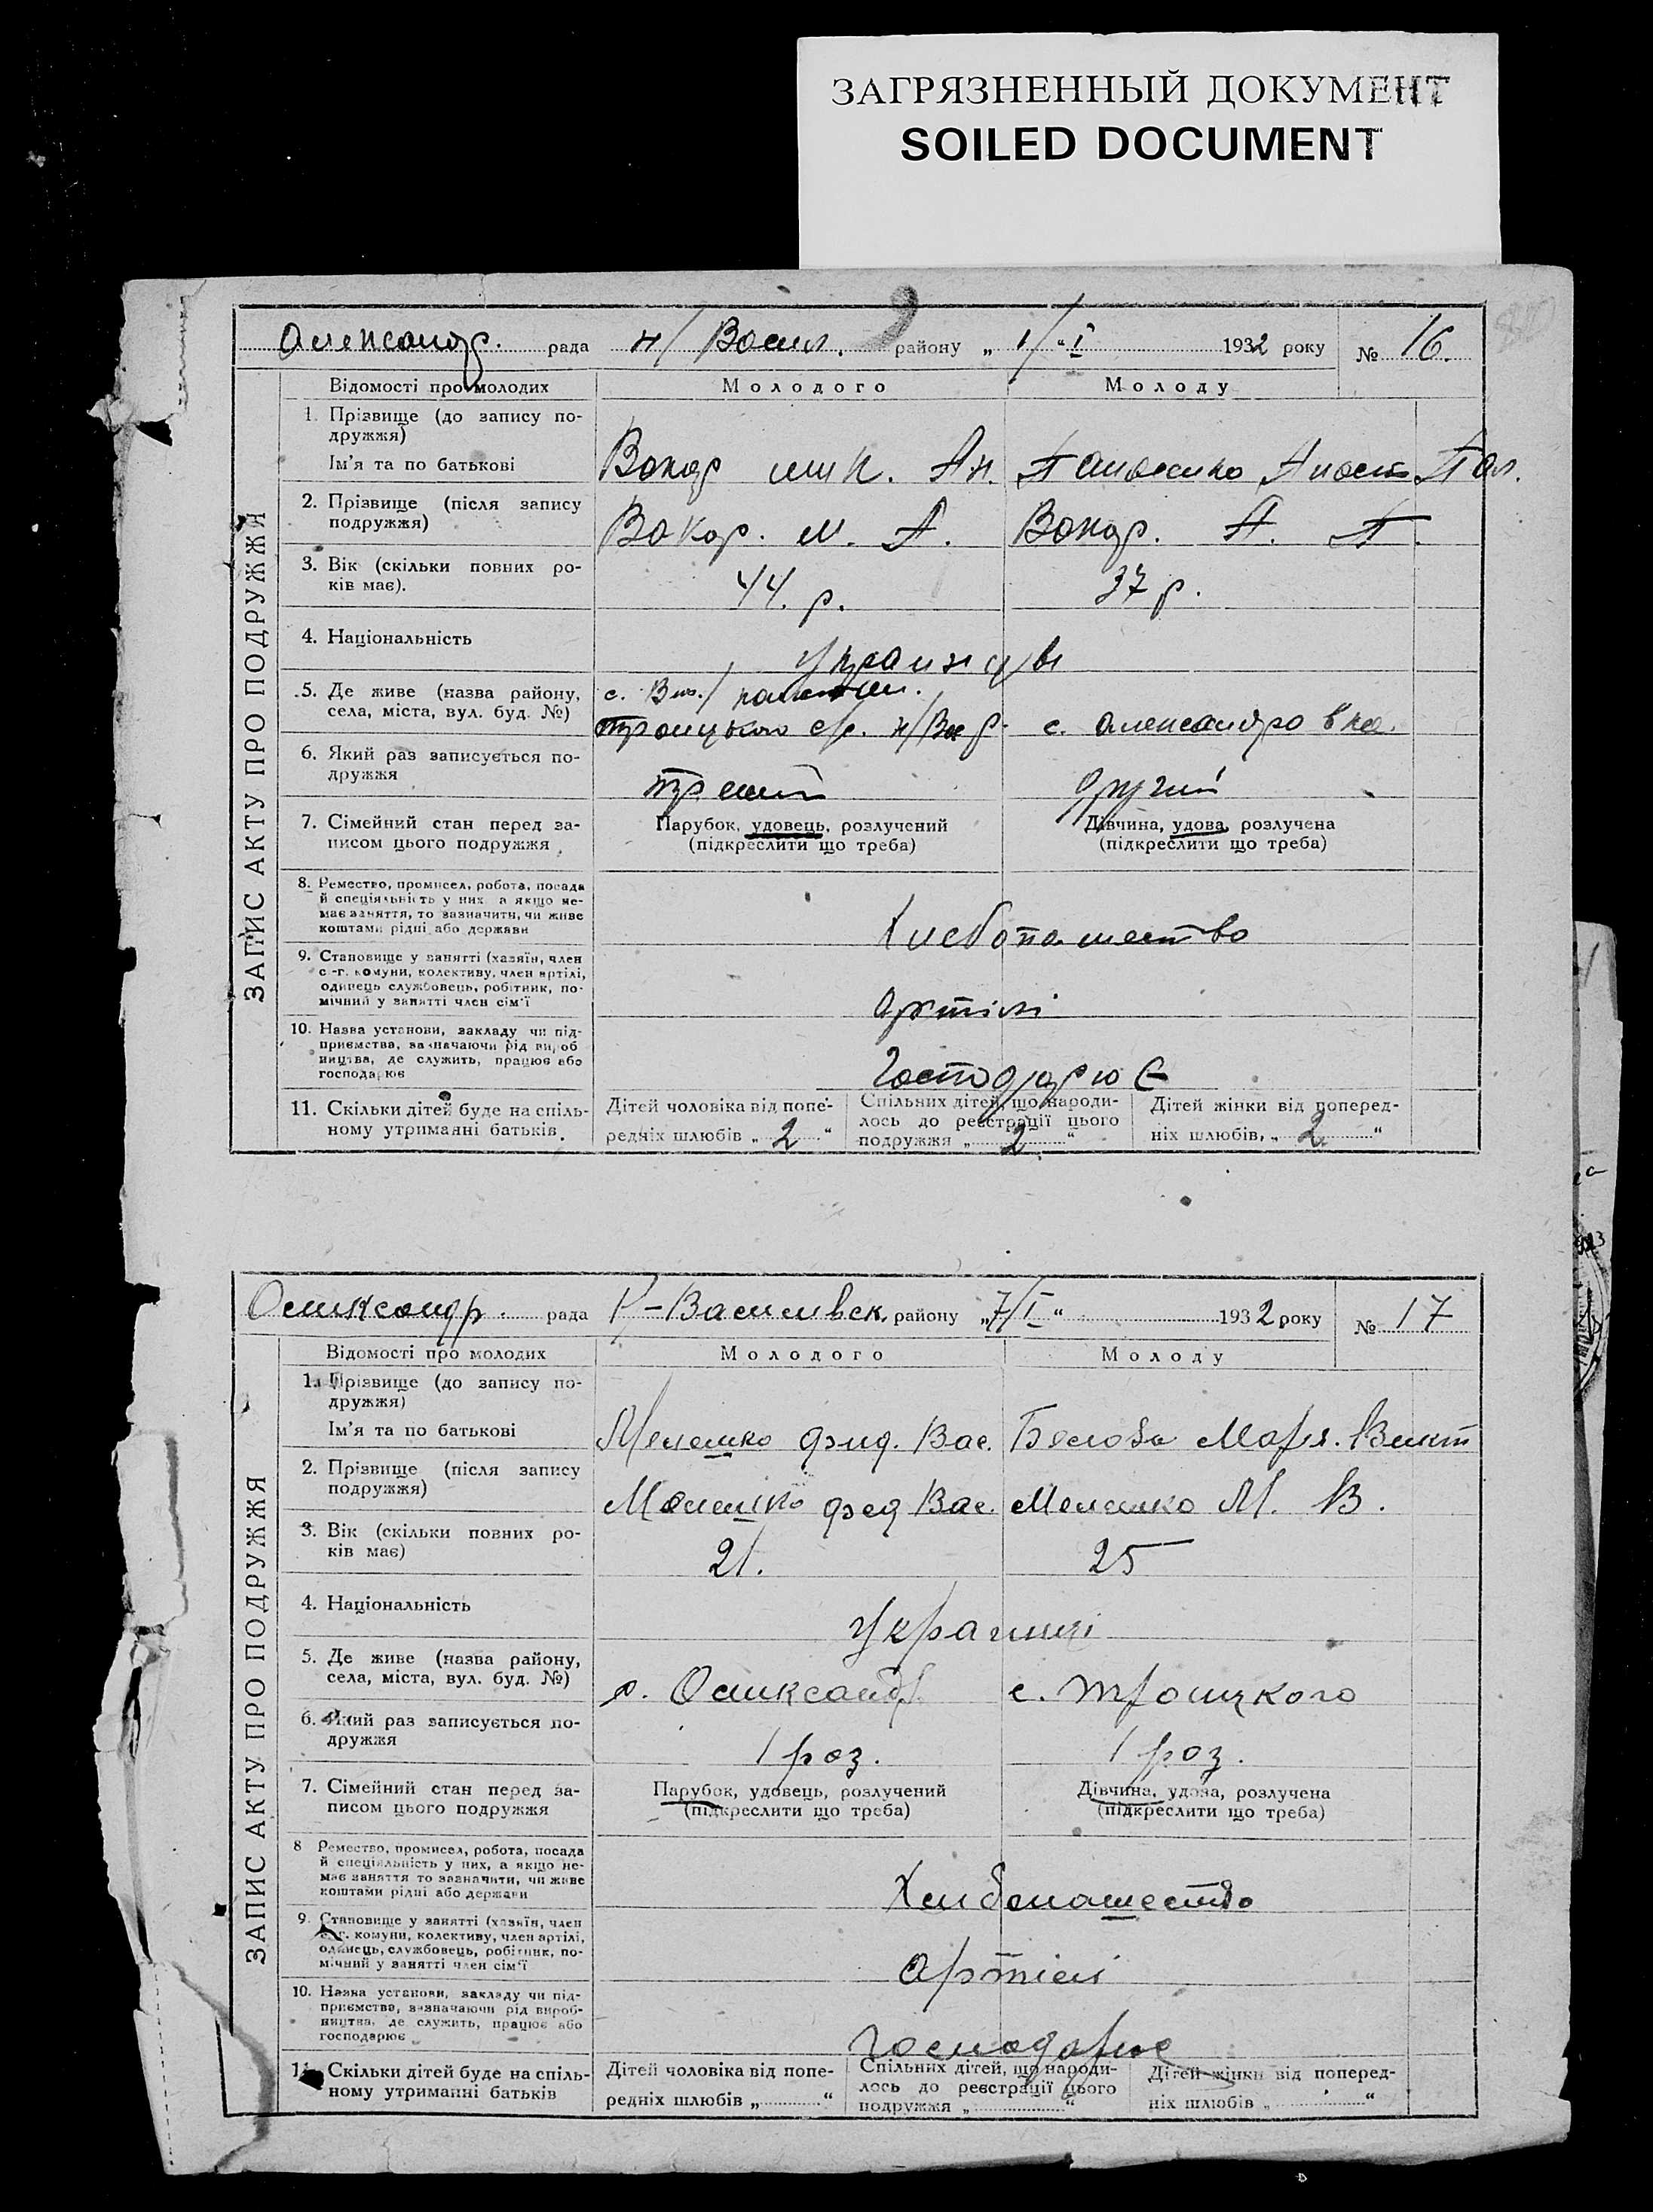 ЗАГРЯЗНЕННЫЙ ДОКУМЕНТ
SOILED DOCUMENT
ЗАПИС АКТУ ПРО ПОДРУЖЖЯ
Олександр. рада Н/Васил. району „1/“ I 1932 року № 16.
Відомості про молодих Молодого Молоду
1. Прізвище (до запису по-
дружжя)
Ім'я та по батькові
Вокар Ан.
2. Прізвище (після запису
подружжя)
Вокар. М. А. Вокар. А. П.
3. Вік (скільки повних ро-
ків має).
44. р. 37 р.
4. Національність
українці
5. Де живе (назва району,
села, міста, вул. буд. №)
с.
Троицького с/р. н/Вас р. с. Александровка.
6. Який раз записується по-
дружжя
третий другий
7. Сімейний стан перед за-
писом цього подружжя
Парубок, удовець, розлучений
(підкреслити що треба)
Дівчина, удова, розлучена
(підкреслити що треба)
8. Ремество, промисел, робота, посада
й спеціяльність у них, а якщо не-
має заняття, то зазначити, чи живе
коштами рідні або держави
Хлебопашество
9. Становище у занятті (хазяїн, член
с.-г. комуни, колективу, член артілі,
одинець службовець, робітник, по-
мічний у занятті член сім'ї
Артілі
10. Назва установи, закладу чи під-
приємства, зазначаючи рід вироб
ництва, де служить, працює або
господарює
Господарює
11. Скільки дітей буде на спіль-
ному утриманні батьків.
Дітей чоловіка від попе-
редніх шлюбів „2“
Спільних дітей, що народи-
лось до реєстрації цього
подружжя „2“
Дітей жінки від поперед-
ніх шлюбів, „2“
ЗАПИС АКТУ ПРО ПОДРУЖЖЯ
Оликсандр. рада Н-Василивск. району „7/I“ 1932 року № 17
Відомості про молодих Молодого Молоду
1. Прізвище (до запису по-
дружжя)
Ім'я та по батькові
Мелешко Фид. Вас. Белова Маря. Викт
2. Прізвище (після запису
подружжя)
Мелешко Фед Вас. Мелешко М. В.
3. Вік (скільки повних ро-
ків має)
21. 25
4. Національність
Украинці
5. Де живе (назва району,
села, міста, вул. буд. №)
с. Оликсандр. с. Троицкого
6. Який раз записується по-
дружжя
1 роз. 1 роз.
7. Сімейний стан перед за-
писом цього подружжя
Парубок, удовець, розлучений
(підкреслити що треба)
Дівчина, удова, розлучена
(підкреслити що треба)
8 Ремество, промисел, робота, посада
й спеціяльність у них, а якщо не-
має заняття то зазначити, чи живе
коштами рідні або держави
Хлибопашество
9. Становище у занятті (хазяїн, член
с.-г. комуни, колективу, член артілі,
одинець, службовець, робітник, по-
мічний у занятті член сім'ї
Артілі
10. Назва установи, закладу чи під-
приємства, зазначаючи рід вироб-
ництва, де служить, працює або
господарює
Господарює
11. Скільки дітей буде на спіль-
ному утриманні батьків
Дітей чоловіка від попе-
редніх шлюбів „ “
Спільних дітей, що народи-
лось до реєстрації цього
подружжя „ “
Дітей жінки від поперед-
ніх шлюбів „ “